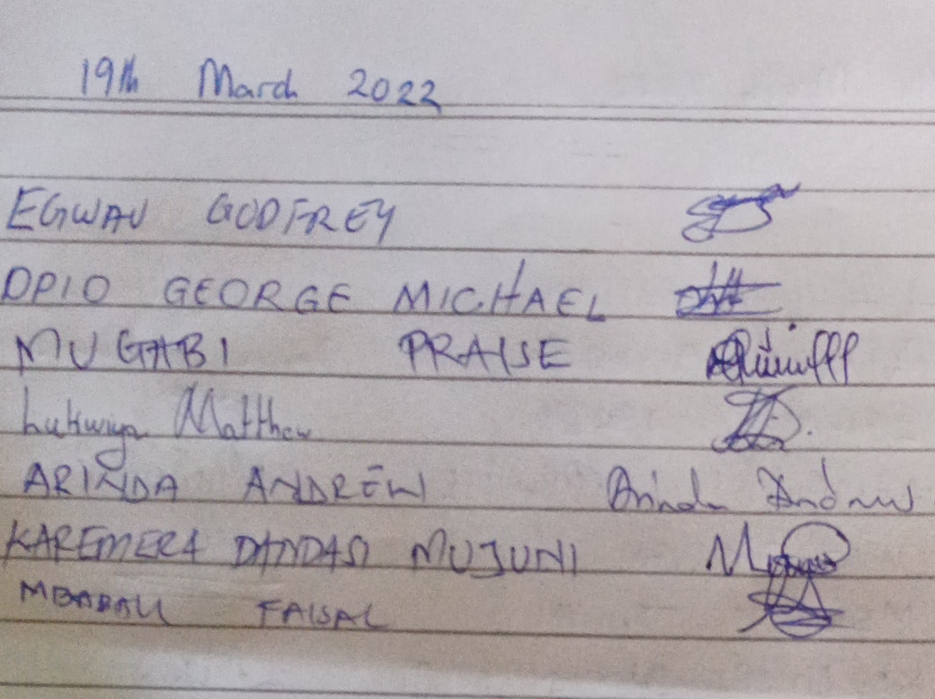 19th March 2022
EGWAU GODFREY
OPIO GEORGE MICHAEL
MUGABI PRAISE
Lukwiya Matthew
ARINDA ANDREW Arinda Andrew
KAREMERA MUJUNI
FAISAL